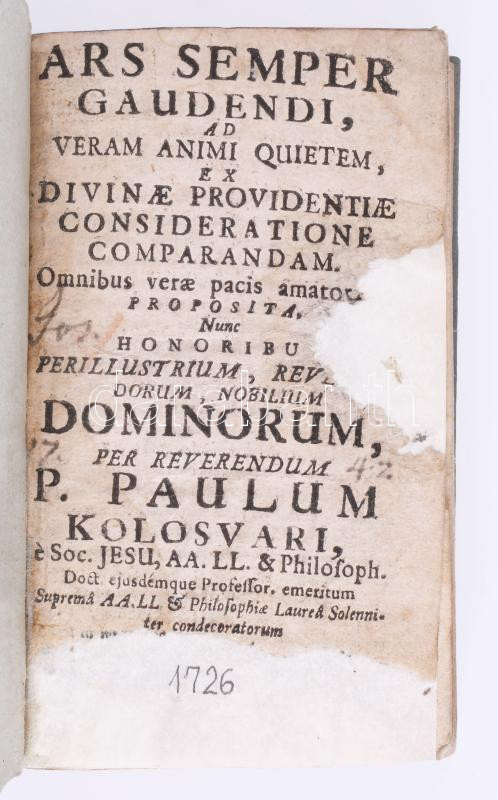 ARS SEMPER
GAUDENDI,
AD
VERAM ANIMI QUIETEM,
EX
DIVINÆ PROVIDENTIÆ
CONSIDERATIONE
COMPARANDAM.
Omnibus veræ pacis amato
PROPOSITA,
Nunc
HONORIBU
PERILLUSTRIUM, REVE
DORUM, NOBILIUM
DOMINORUM,
PER REVERENDUM
42.
P. PAULUM
KOLOSVARI,
è Soc. JESU, AA. LL. & Philoſoph.
Doct. ejusdémque Profeſſor. emeritum
Supremâ AA.LL & Philoſophiæ Laureâ Solenni-
ter condecoratorum
1726